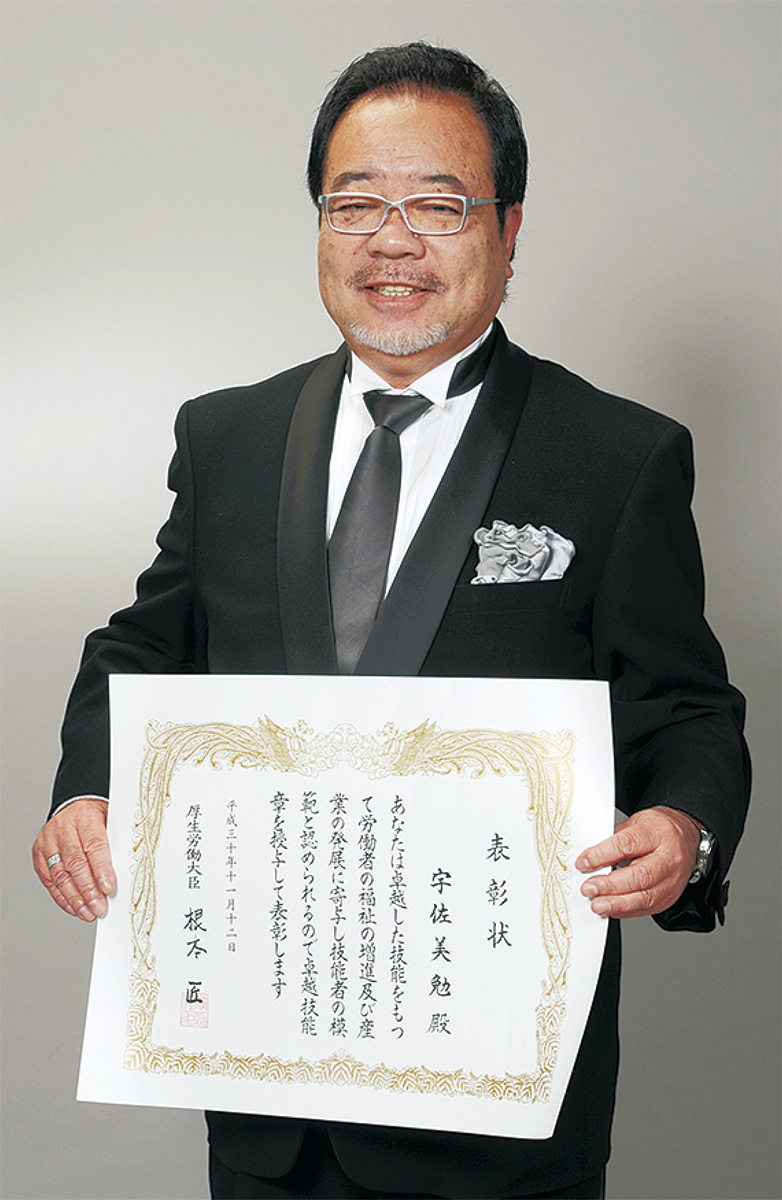 表彰状
宇佐美勉殿
あなたは卓越した技能をもつ
て労働者の福祉の増進及び産
業の発展に寄与し技能者の模
範と認められるので卓越技能
章を授与して表彰します
平成三十年十一月十二日
厚生労働大臣 根本匠